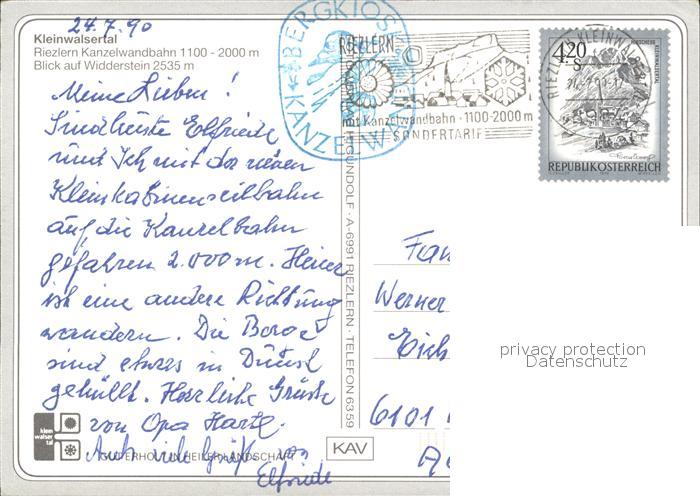 24.7.90
Kleinwalsertal
Riezlern Kanzelwandbahn 1100 - 2000 m
Blick auf Widderstein 2535 m
Meine Lieben!
Sind heute Elfriede
und Ich mit der neuen
Kleinkabinenseilbahn
auf die Kanzelbahn
gefahren 2.000 m. Heiner
ist eine andere Richtung
wandern. Die Berge
sind etwas in Dunst
gehüllt. Herzliche Grüße
von Opa
Auch viele Grüße von
Elfriede
klein
walser
tal
GUTERHOLT IN HEILER LANDSCHAFT
BERGKIOSK
KANZELW
RIEZLERN
mit Kanzelwandbahn · 1100-2000 m
SONDERTARIF
RIEZLERN · KLEINWAL
4.20
S
REPUBLIK ÖSTERREICH
GUNDOLF · A-6991 RIEZLERN · TELEFON 6359
KAV
Fam
Werner
Eich
6101
privacy protection
Datenschutz